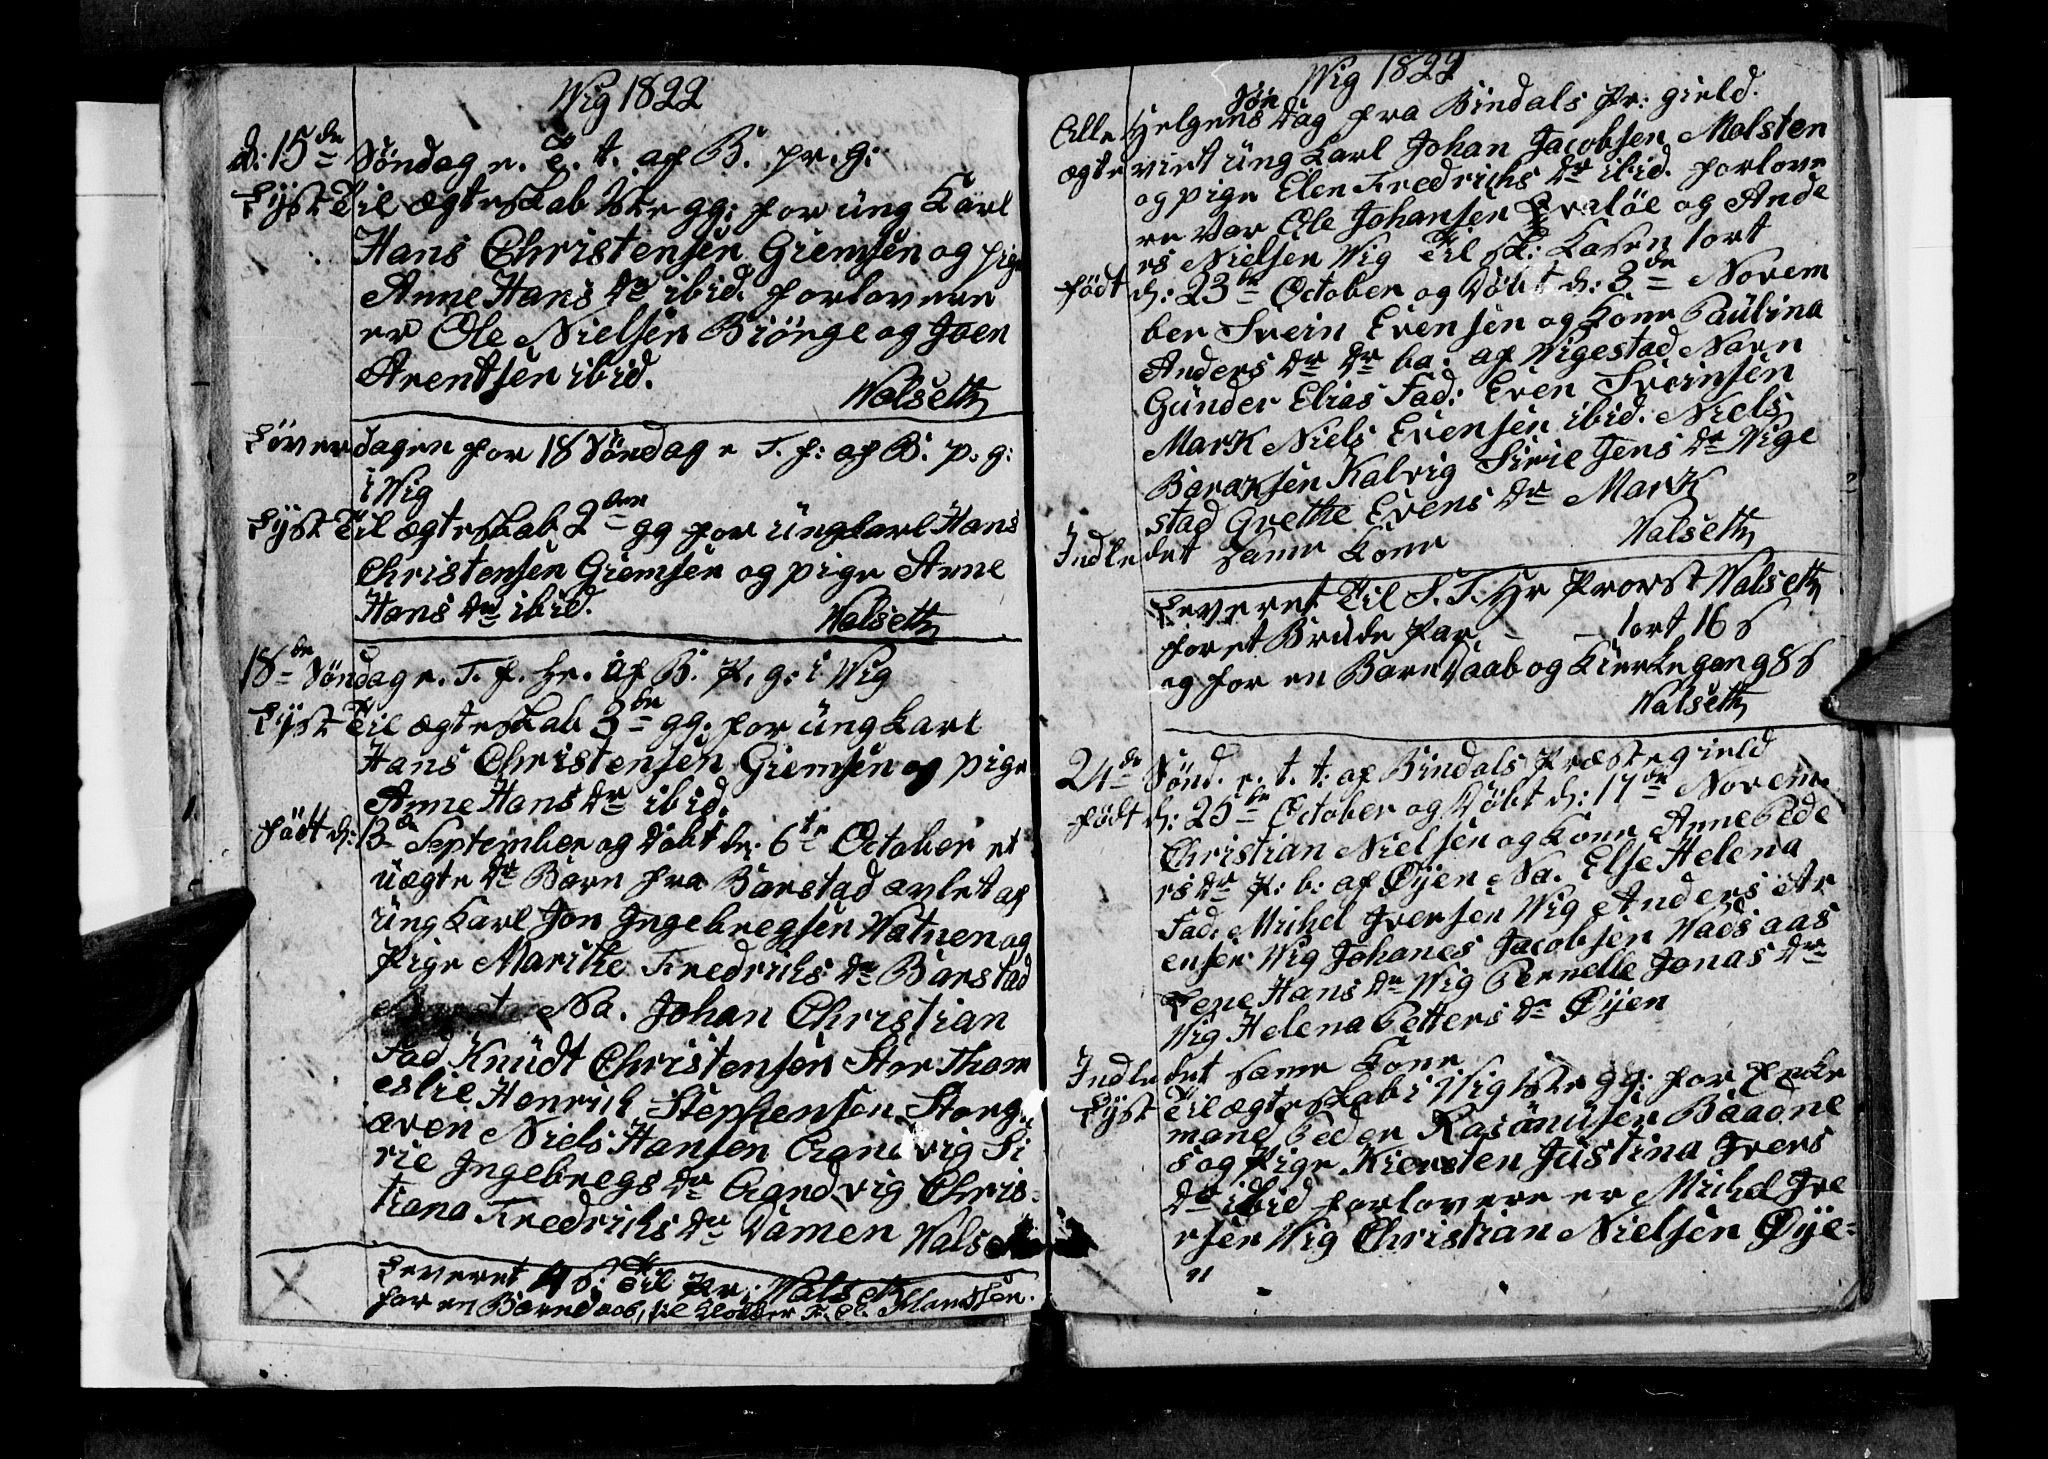 Wig 1822
d: 15de Söndag e. T. t. af B. pr. g:
Lyst Til ægteskab 1ste gg: for ung Karl
Hans Christensen Giemsen og pige
Anne Hans Dr ibid. forlovere
er Ole Nielsen Biörge og Joen
Arentsen ibid.
Walseth
Löverdagen for 18 Söndag e T. f: af B. p. g:
i Wig
Lyst Til ægteskab 2den gg for ungkarl Hans
Christensen Giemsen og pige Anne
Hans Dr ibid.
Walseth
18de Söndag e. T. f. Hr. af B. P. g: i Wig
Lyst Til ægteskab 3de gg: for ung karl
Hans Christensen Giemsen og pige
Anne Hans Dr ibid.
födt d: 13de September og Döbt d: 6te October et
uægte Dr Barn fra Barstad avlet af
ung Karl Jon Ingebregsen Watnen og
Pige Marithe Fredrichs Dr Barstad
Na. Johan Christian
Fad Knudt Christensen Stor Thom
eslie Henrich Stephensen Storg
aven Niels Hansen Aandvig Si
rie Ingebregs Dr Aandvig Chris-
tiana Fredrichs Dr Damen Walseth
Leveret 4 s: Til Pr: Walseth
for en Barnedaab, til Klokker Fr. Cl. Hanssen.
Wig 1822
Alle Helgens Søn Dag fra Bindals Pr: gield.
ægteviet ung karl Johan Jacobsen Molsten
og pige Elen Fredrichs Dr ibid. forlove
re var Ole Johansen Qvaløe og Ande
rs Nielsen Wig Til sk: Kasen 1ort
födt d: 23de October og Döbt d: 3de Novem
ber Svein Evensen og Kone Paulina
Anders Dr Dr ba: af Wigestad Navn
Gunder Elias Fad: Even Sveinsen
Mark Niels Evensen ibid. Niels
Baraksen Kalvig Sirie Jens Dr Wige
stad Grethe Evens Dr Mark
Indledet Same Kone Walseth
Leveret Til S. T. Hr Provst Walseth
for et Brude Par - - 1ort 16 s
og for en Barn Daab og Kierkegang 8 s
Walseth
24de Sönd. e. t. t: af Bindals Præstegield
födt d: 25de October og Döbt d: 17de Novem.
Christian Nielsen og Kone Anne Pede
rs Dr P: b: af Øyen Na. Else Helena
Fad. Michel Iversen Wig Anders Ar
ensen Wig Johanes Jacobsen Wads aas
Lene Hans Dr Wig Pernelle Jonas Dr
Wig Helena Petters Dr Øyen
Indledet Same Kone
Lyst Til ægteskab i Wig 1ste gg: for Enke
mand Peder Rasmusen Baaðne
s og Pige Kiersten Justina Ivers
Dr ibid forlovere er Michel Ive
rsen Wig Christian Nielsen Øye-
n